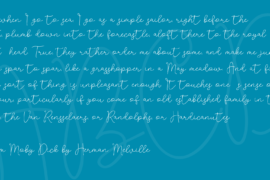 when I go to sea I go as a simple sailor right before the
plumb down into the forecastle aloft there to the royal
True they rather order me about some and make me
spar to spar like a grasshopper in a May meadow And at
sort of thing is unpleasant enough It touches one's sense of
particularly if you come of an old established family in
the Van Rensselaers or Randolphs or Hardicanutes
Moby Dick by Herman Melville